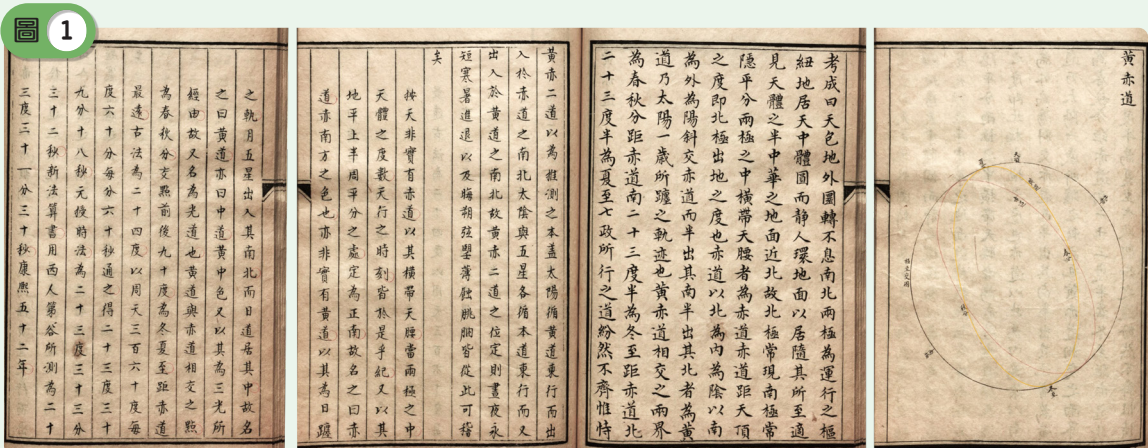 圖 1
黃赤道
考成曰天包地外圜轉不息南北兩極為運行之樞
紐地居天中體圓而靜人環地面以居隨其所至適
見天體之半中華之地面近北故北極常現南極常
隱平分兩極之中橫帶天腰者為赤道赤道距天頂
之度即北極出地之度也赤道以北為內為陰以南
為外為陽斜交赤道而半出其南半出其北者為黃
道乃太陽一歲所躔之軌迹也黃赤道相交之兩界
為春秋分距赤道南二十三度半為冬至距赤道北
二十三度半為夏至七政所行之道紛然不齊惟恃
黃赤二道以為推測之本蓋太陽循黃道東行而出
入於赤道之南北太陰與五星各循本道東行而又
出入於黃道之南北故黃赤二道之位定則晝夜永
短寒暑進退以及晦朔弦望薄蝕朓朒皆從此可稽
矣
按天非實有赤道以其橫帶天腰當兩極之中
天體之度數天行之時刻皆於是乎紀又以其
地平上半周平分之處定為正南故名之曰赤
道赤南方之色也亦非實有黃道以其為日躔
之軌月五星出入其南北而日道居其中故名
之曰黃道亦曰中道黃中色又以其為三光所
經由故又名為光道也黃道與赤道相交之點
為春秋分交點前後九十度為冬夏至距赤道
最遠古法為二十四度以周天三百六十度每
度六十分每分六十秒通之得二十三度三十
九分十八秒元授時法為二十三度三十三分
三十二秒新法算書用西人第谷所測為二十
三度三十一分三十秒康熙五十二年